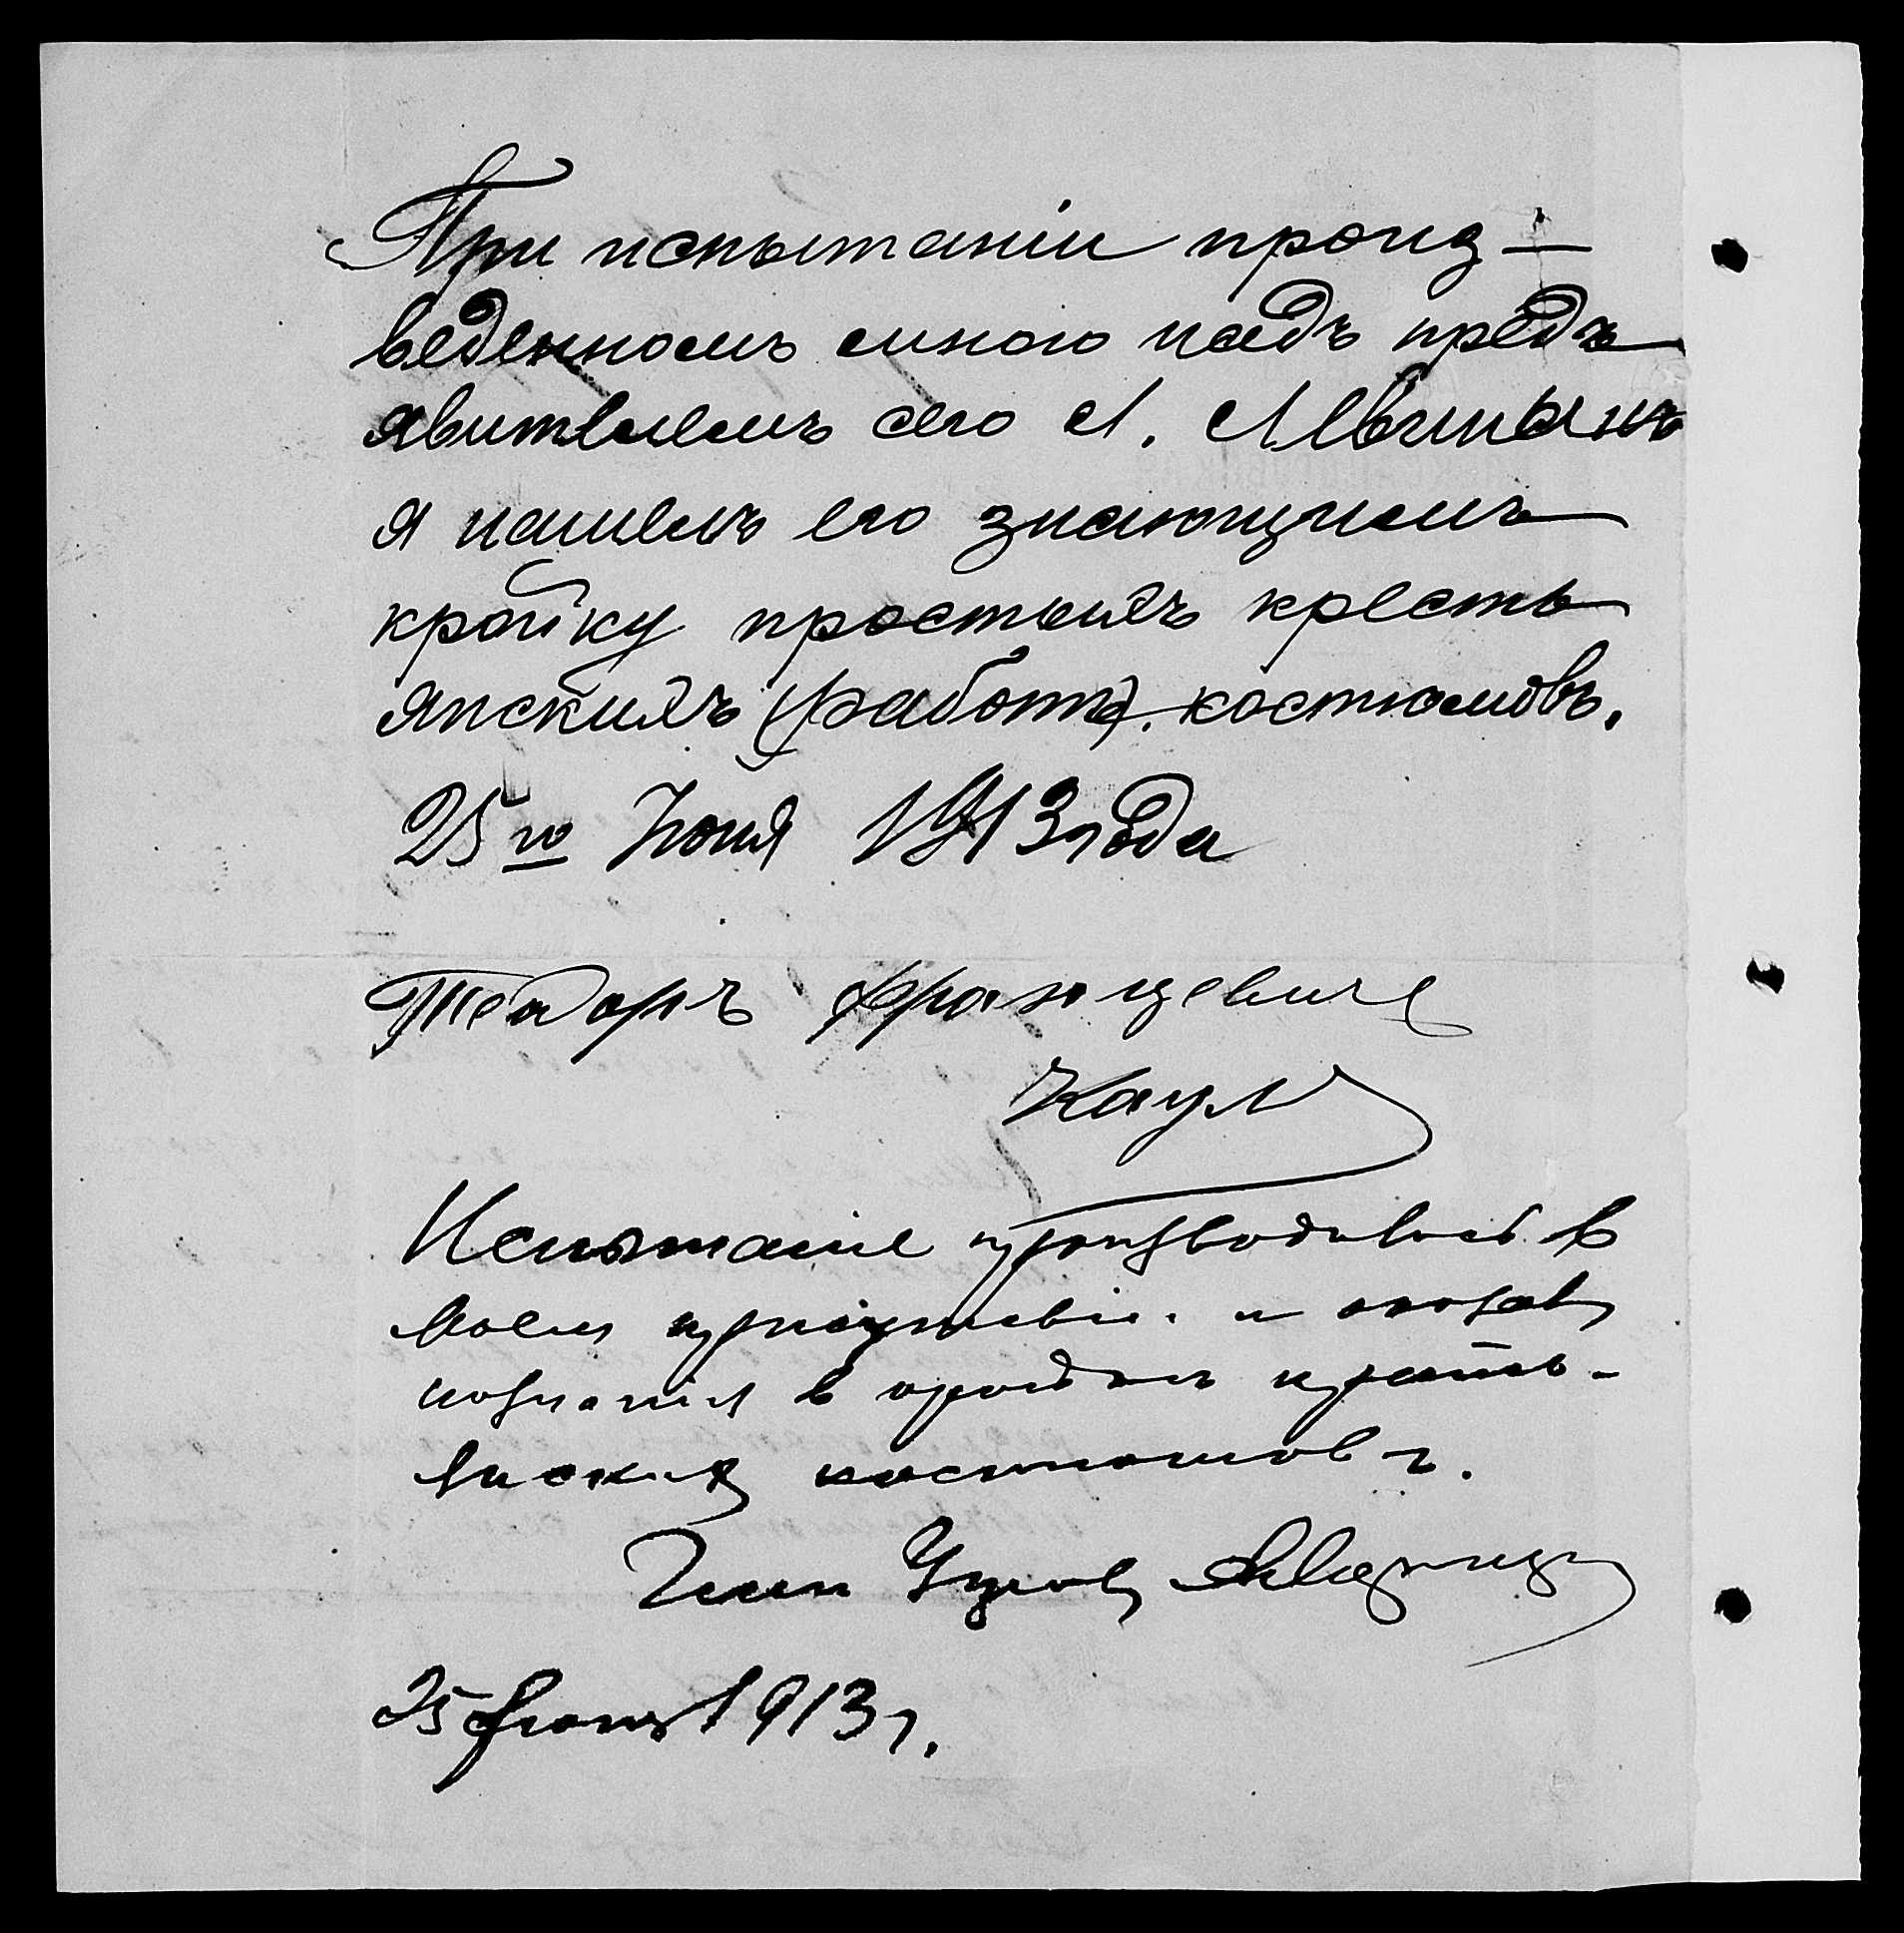 При испытаніи произ-
веденномъ мною надъ предъ
явителемъ сего Л.
я нашелъ его знающимъ
кройку простыхъ кресть
янскихъ (работъ). костюмовъ.
25го Іюня 1913 года
Теодоръ Францевичъ
Каул
Испытаніе производилось в
моем присутствіи и оказал
познанія в кройкѣ кресть-
янских костюмовъ.
25 Іюня 1913 г.